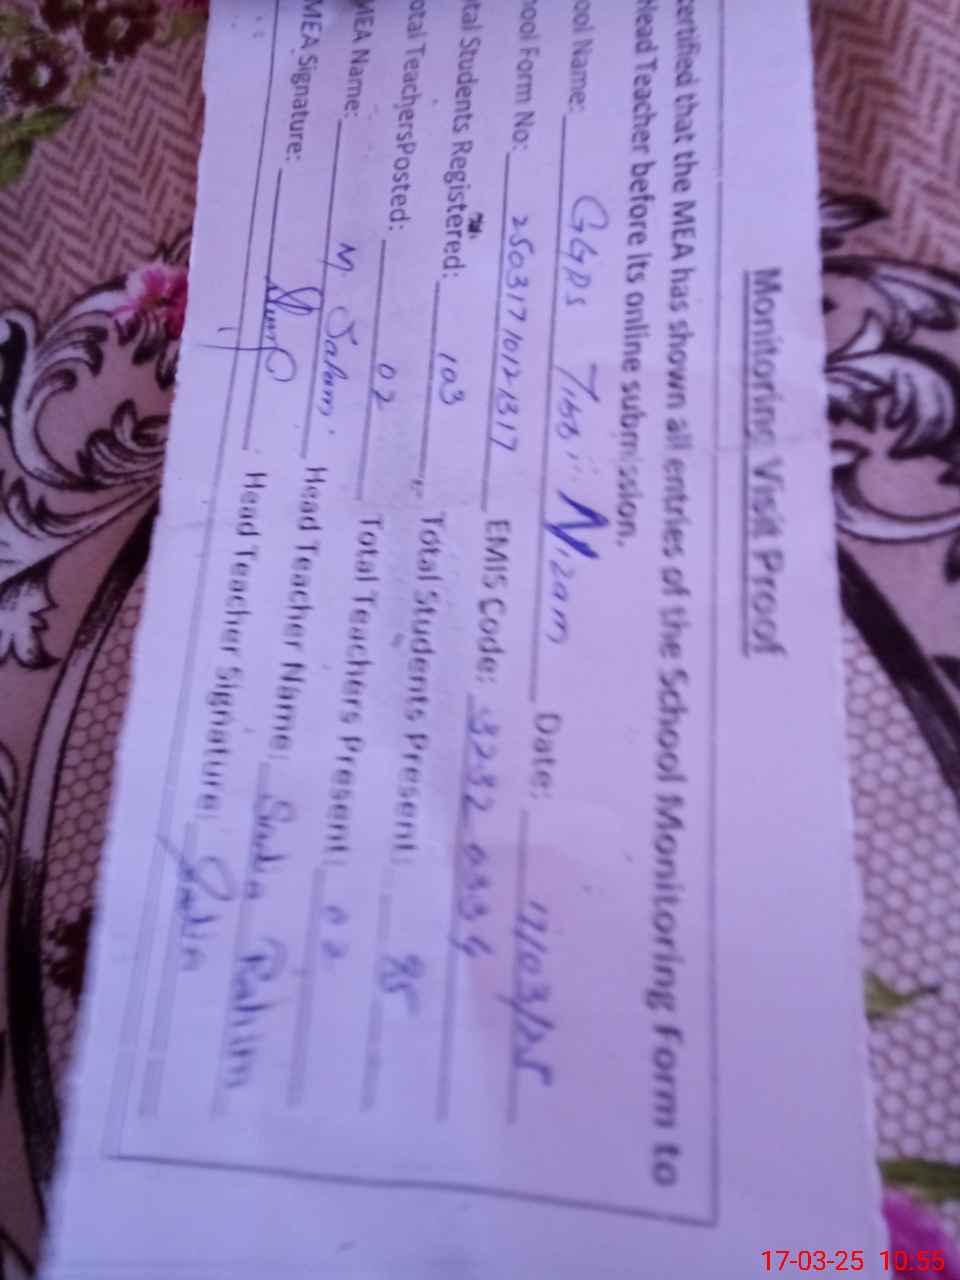 Monitoring Visit Proof
certified that the MEA has shown all entries of the School Monitoring Form to
Head Teacher before its online submission.
ool Name: GGPS Tibbi Nizam Date: 17/03/25
ool Form No: 25031710121317 EMIS Code: 3232 0334
tal Students Registered: 103 Total Students Present: 85
otal TeachersPosted: 02 Total Teachers Present: 02
MEA Name: M Salam Head Teacher Name: Sadia Rahim
MEA Signature: Head Teacher Signature: Sadia
17-03-25 10:55